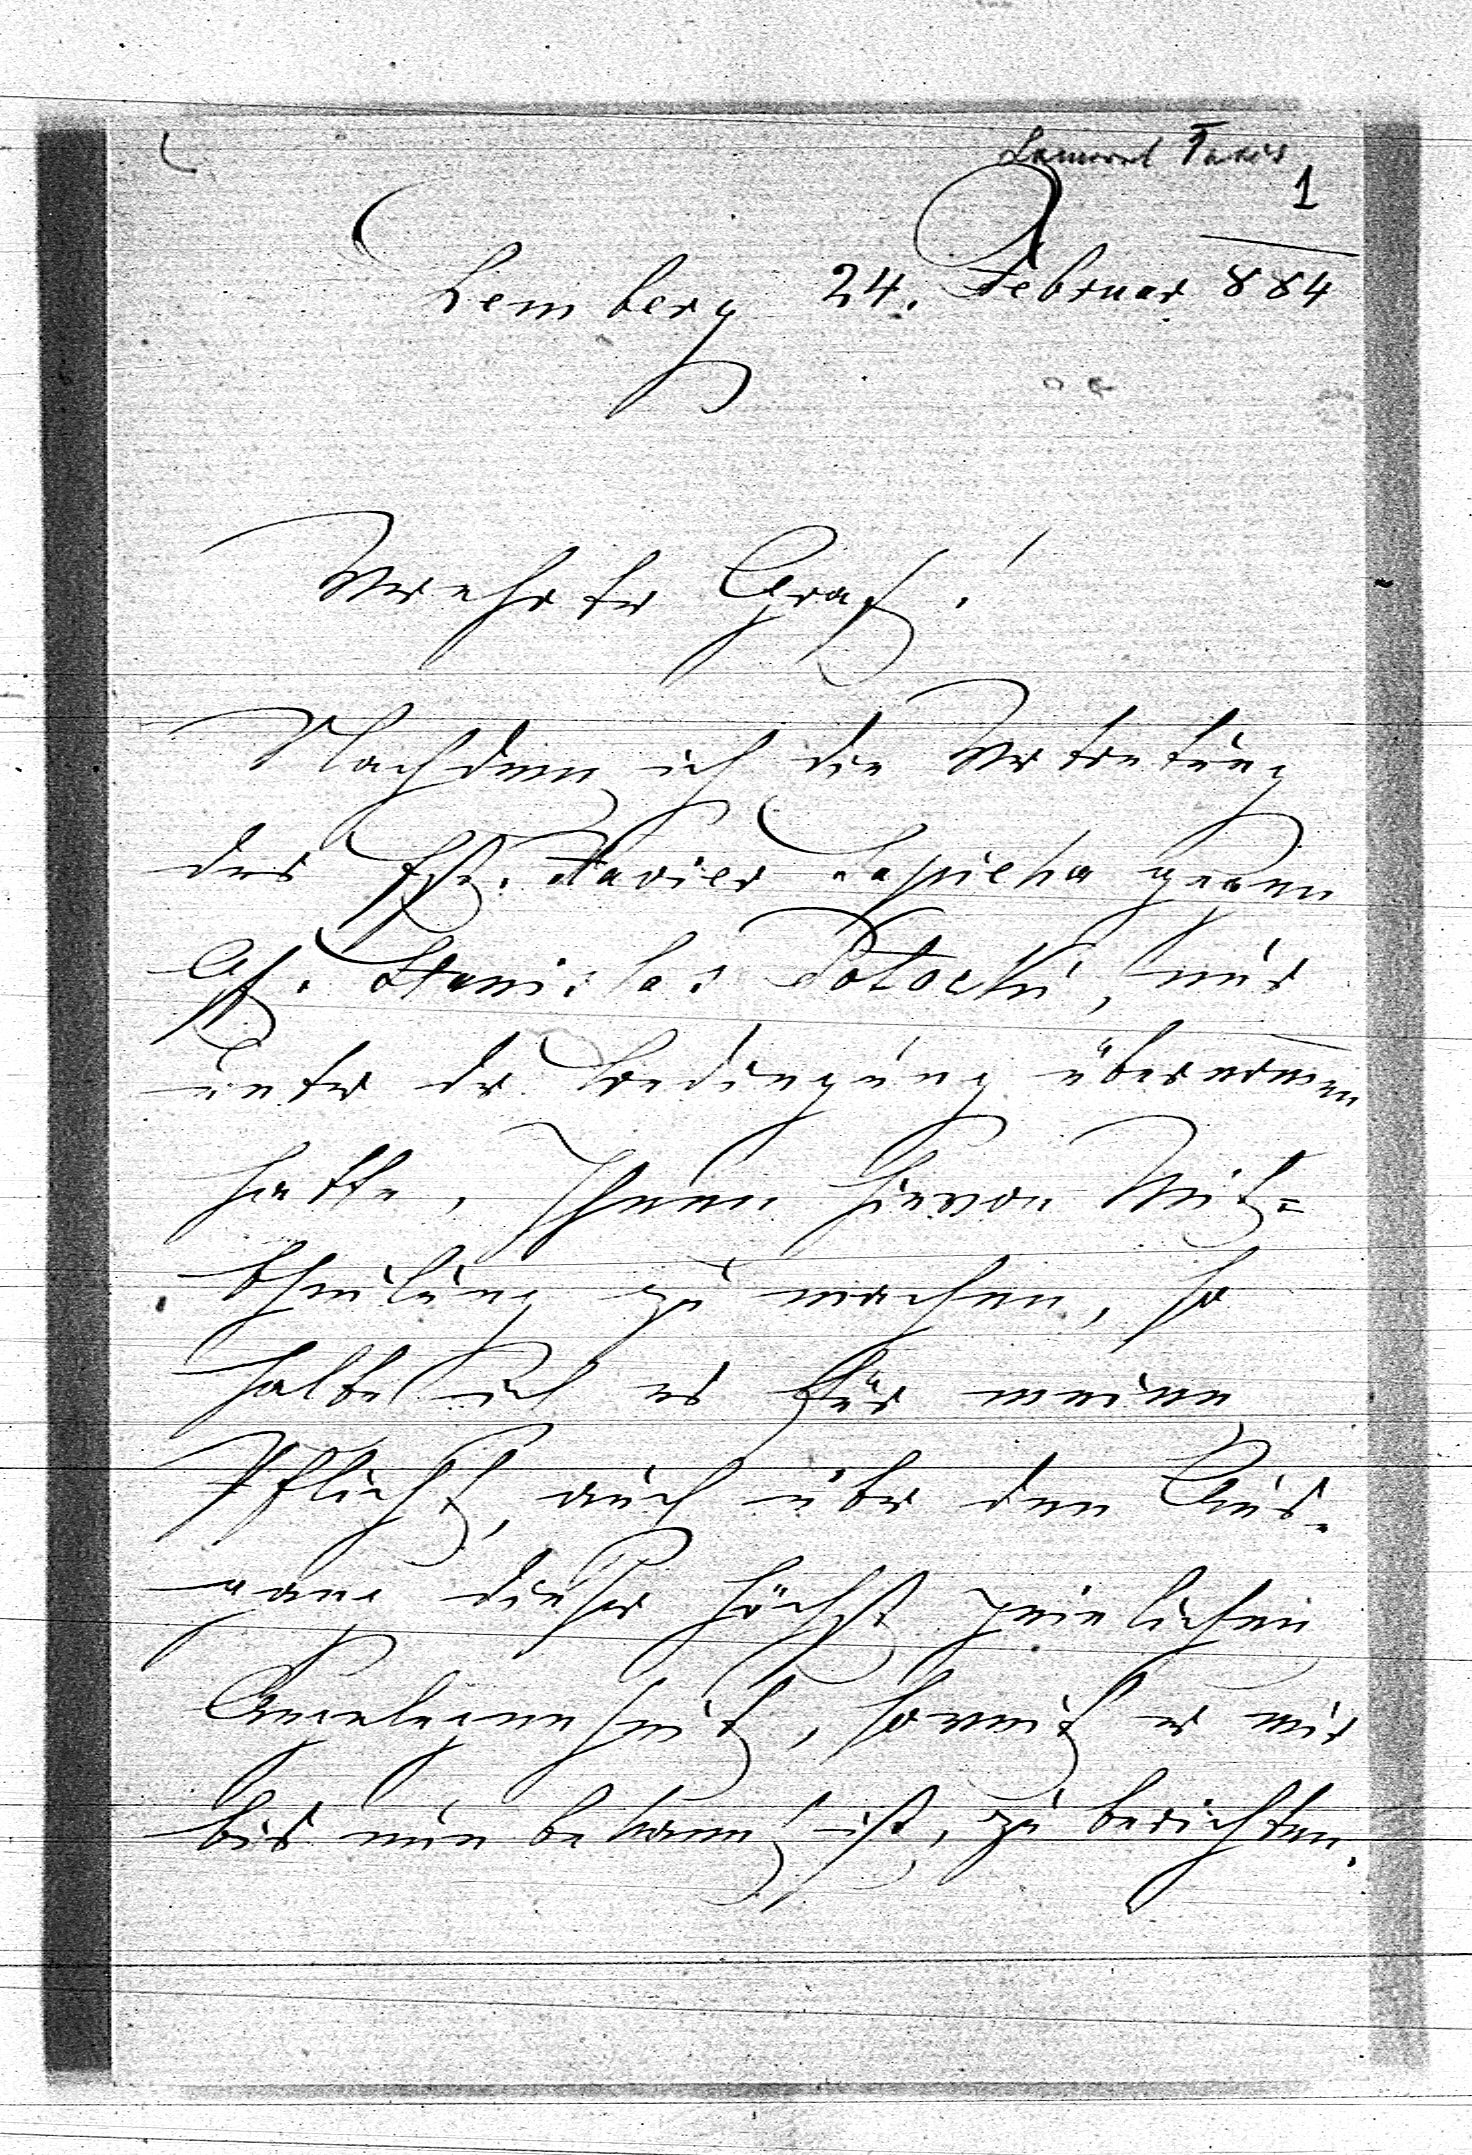 Lamoral Taxis
1
Lemberg 24. Februar 884
Verehrter Graf!
Nachdem ich die Vertretung
des Fst. Xavier Sapieha gegen
Gf. Stanislas Potocki, nur
unter der Bedingung übernomen
hatte, Ihnen hievon Mit=
theilung zu machen, so
halte ich es für meine
Pflicht, auch über den Aus-
gang dieser höchst peinlichen
Angelegenheit, soweit er mir
bis nun bekannt ist, zu berichten.